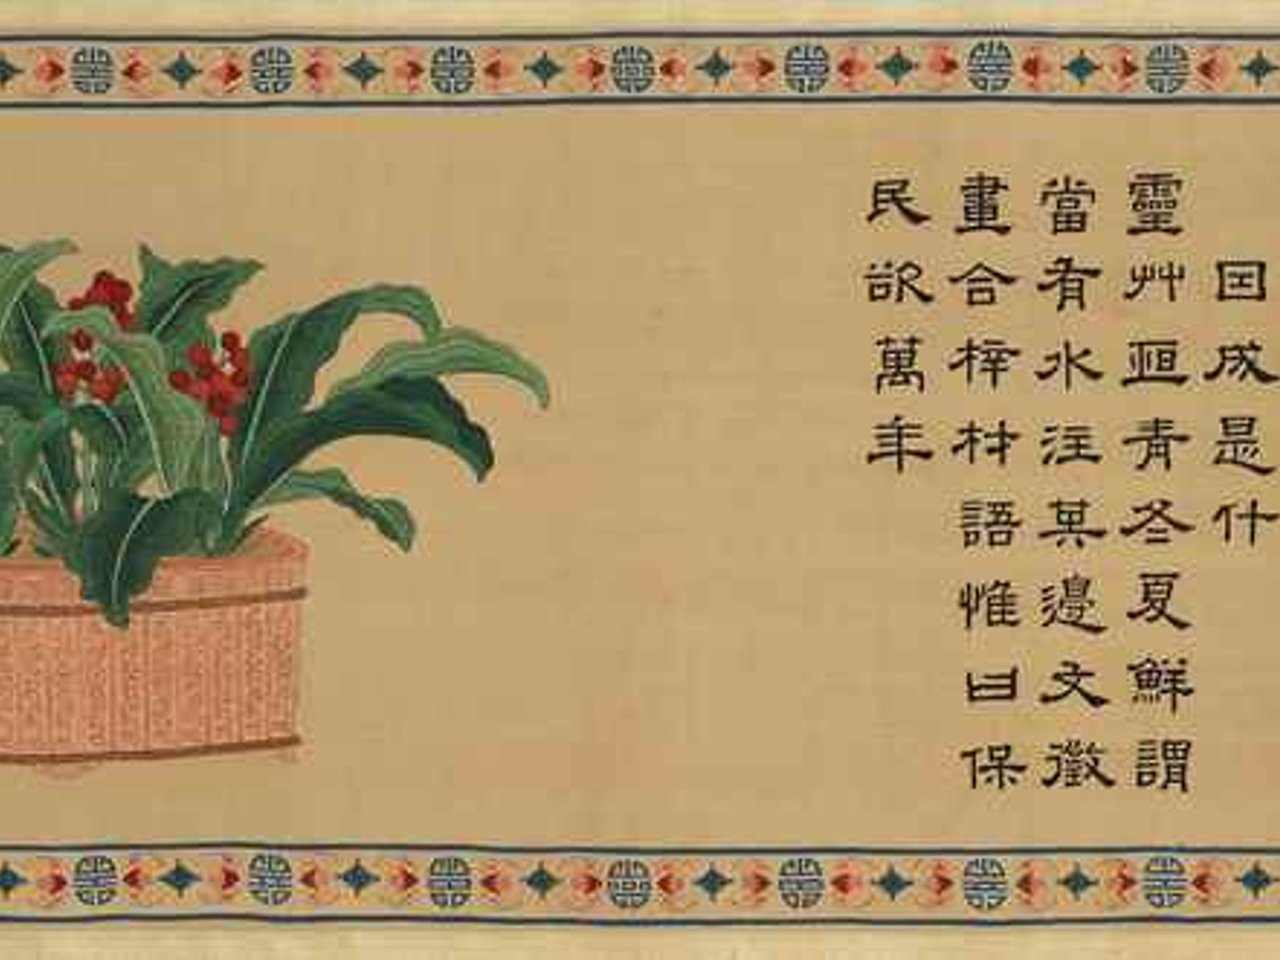 囙成是什
靈艸亙青冬夏鮮謂
當有水注其邊文徵
畫合梓材語惟曰保
民欲萬年